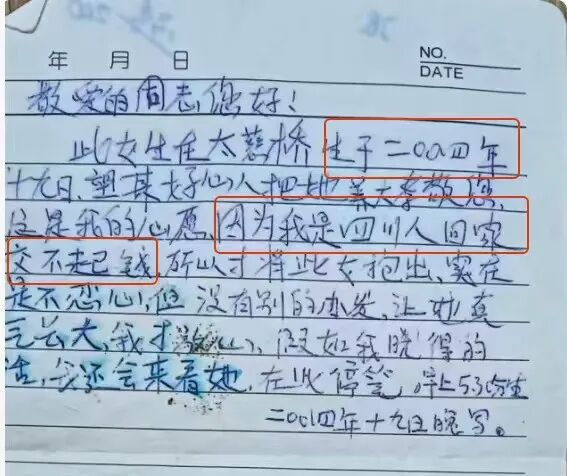 年 月 日
NO.
DATE
敬爱的同志,您好!
此女生在太慈桥生于二00四年
十九日,望某好心人把她养大孝敬您,
这是我的心愿,因为我是四川人回家
交不起已钱,所以才将此女抱出,实在
是不忍心,但没有别的办发,让她真
长大,我才心,假如我晓得的
话,我还会来看她,在此停笔,早上5.30分生
二00四年十九日晚写。